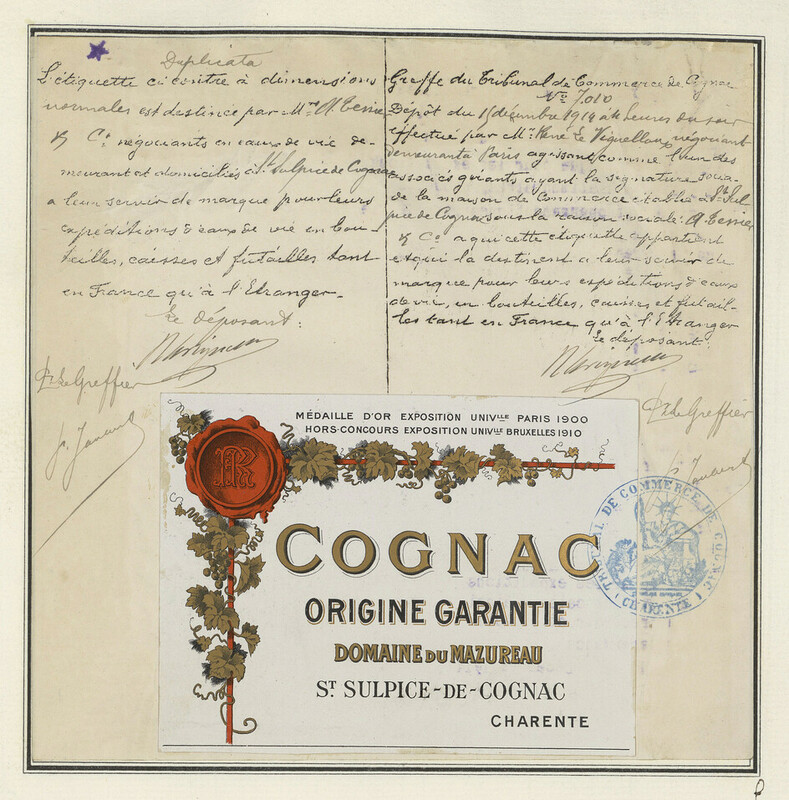 Duplicata
L'étiquette ci contre à dimensions
normales est destinée par Mrs A. Tessier
& Cie négociants en eaux de vie de-
meurant et domiciliés à St Sulpice de Cognac
a leur servir de marque pour leurs
expéditions d'eaux de vie en bou-
teilles, caisses et futailles tant
en France qu'à l'Etranger-
Le déposant:
Le Greffier
Greffe du Tribunal de Commerce de Cognac
No 7.010
Dépôt du décembre 1914 à heures du soir
effectué par Mr René Le négociant
demeurant à Paris agissant comme l'un des
associés gérants ayant la signature socia-
de la maison de Commerce établie à St Sul
pice de Cognac sous la raison sociale: A. Tessier
& Cie a qui cette étiquette appartient
et qui la destinent a leur servir de
marque pour leurs expéditions d'eaux
de vie, en bouteilles, caisses et futail-
les tant en France qu'à l'Etranger
Le déposant:
Le Greffier
MÉDAILLE D'OR EXPOSITION UNIVLLE PARIS 1900
HORS-CONCOURS EXPOSITION UNIVLLE BRUXELLES 1910
COGNAC
ORIGINE GARANTIE
DOMAINE DU MAZUREAU
ST SULPICE-DE-COGNAC
CHARENTE
TRIBUNAL DE COMMERCE DE COGNAC
(CHARENTE)